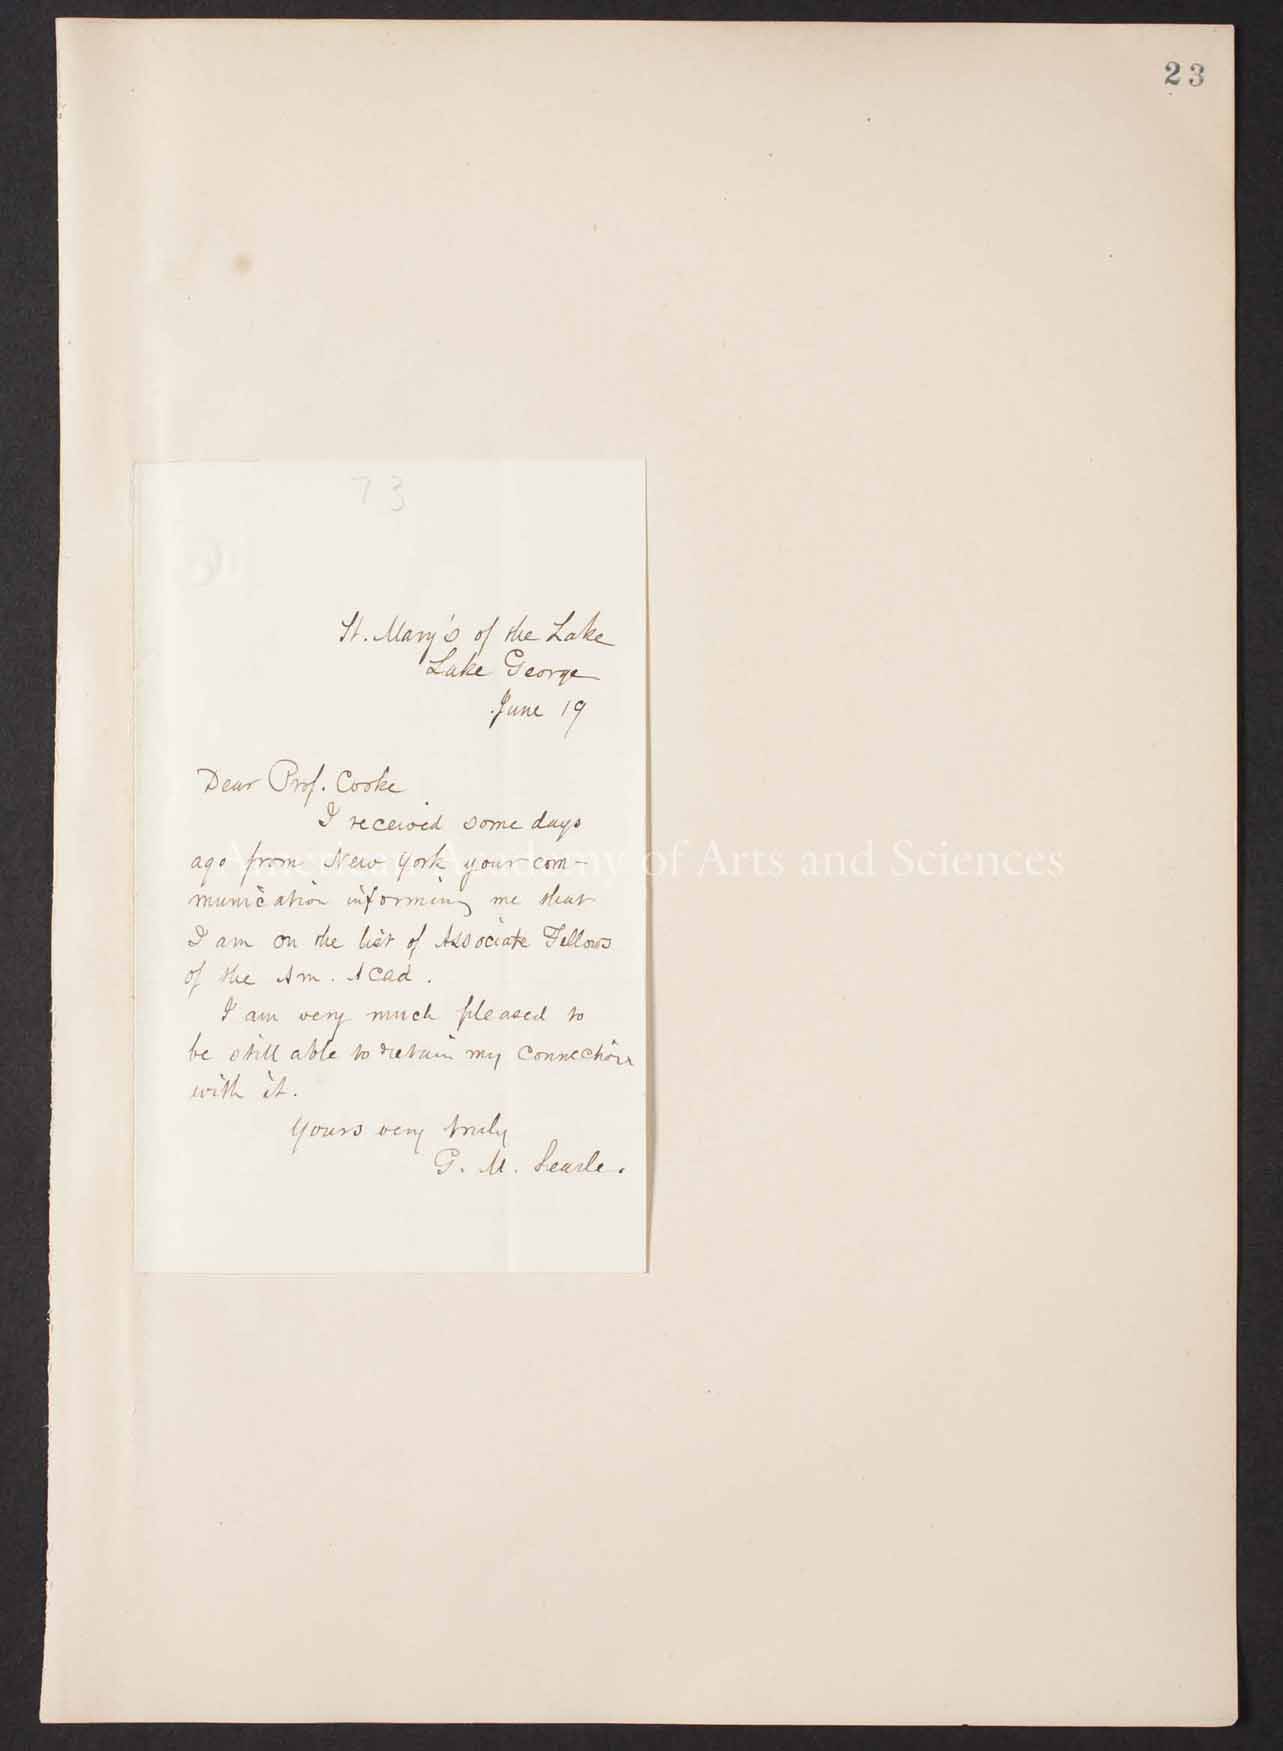 23
73
St. Mary's of the Lake
Lake George
June 19
Dear Prof. Cooke
I received some days
ago from New York your com-
munication informing me that
I am on the list of Associate Fellows
of the Am. Acad.
I am very much pleased to
be still able to retain my connection
with it.
Yours very truly
G. M. Searle.
American Academy of Arts and Sciences